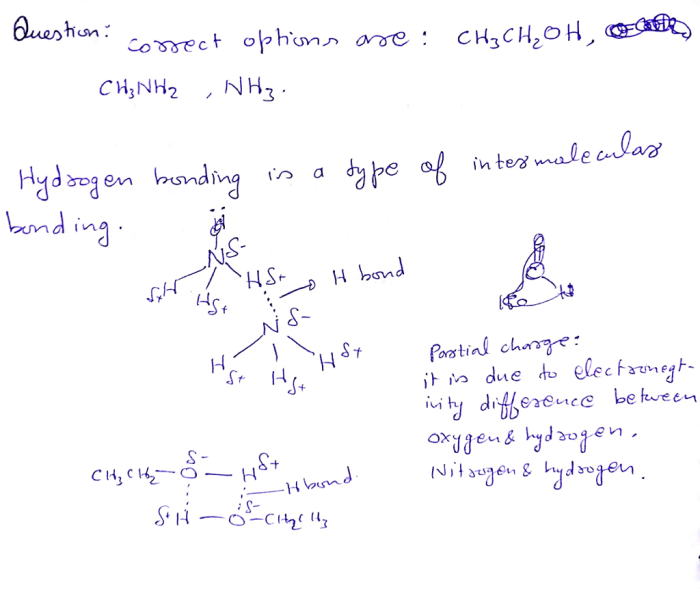 Question: correct options are: CH3CH2OH,
CH3NH2, NH3.
Hydrogen bonding is a type of intermolecular
bonding.
Nδ-
δ+H
Hδ+
Hδ+
H bond
N δ-
H δ+
H δ+
H δ+
Partial charge:
it is due to electronegt-
ivity difference between
oxygen & hydrogen.
Nitrogen & hydrogen.
CH3CH2-O-H
δ-
δ+
H bond
δ+H-O-CH2CH3
δ-